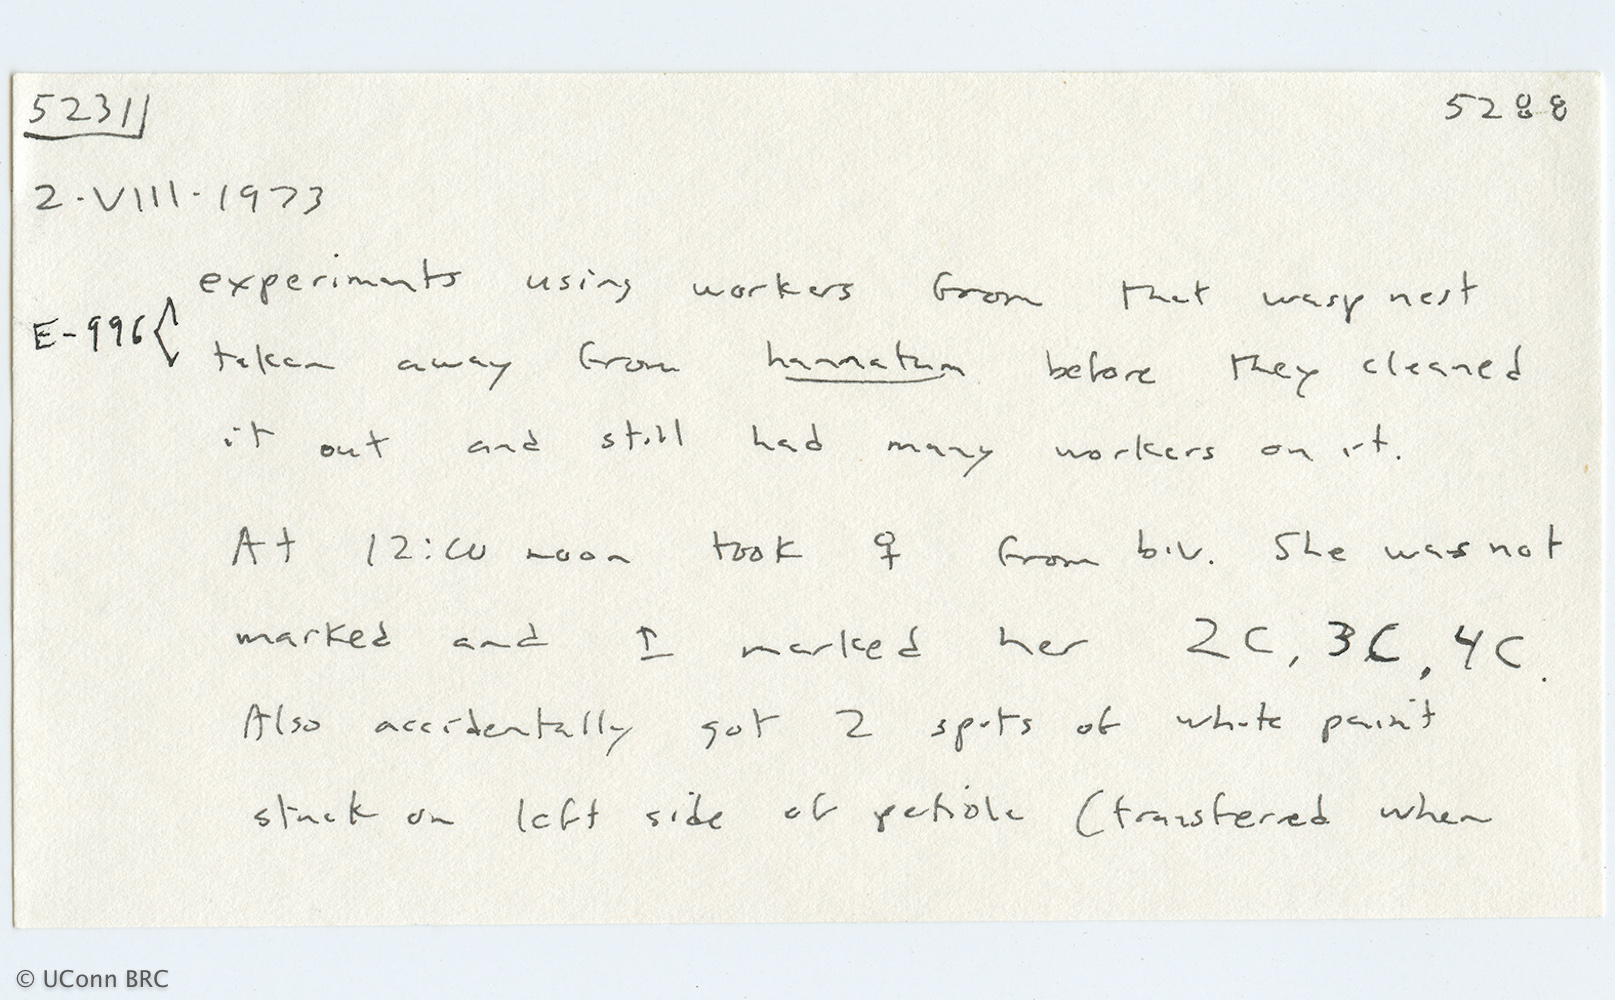 5231 5288
2·VIII·1973
experiments using workers from that wasp nest
E-996{ taken away from hamatum before they cleaned
it out and still had many workers on it.
At 12:00 noon took ♀ from biv. She was not
marked and I marked her 2C, 3C, 4C.
Also accidentally got 2 spots of white paint
stuck on left side of petiole (transferred when
© UConn BRC